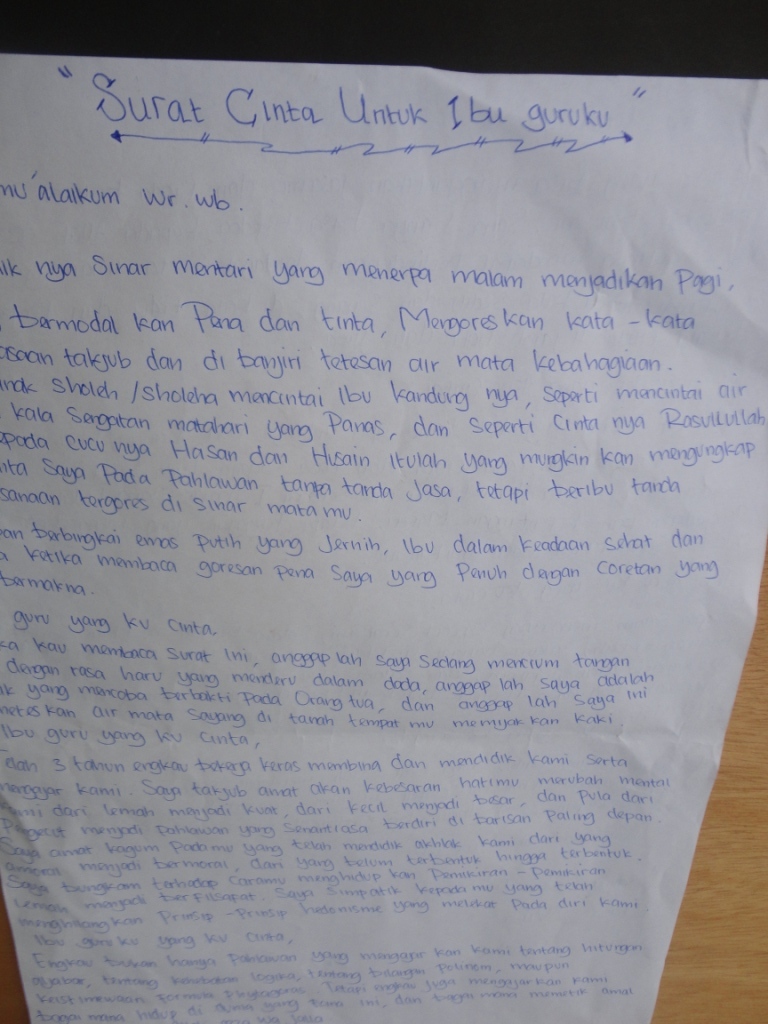 " Surat Cinta Untuk Ibu guruku "
mu'alaikum Wr. wb.
ik nya Sinar mentari yang menerpa malam menjadikan Pagi,
bermodal kan Pena dan tinta, Mengoreskan kata - kata
asaan takjub dan di banjiri tetesan air mata kebahagiaan.
anak Sholeh / Sholeha mencintai Ibu kandung nya, Seperti mencintai air
kala Sengatan matahari yang Panas, dan Seperti Cinta nya Rasullullah
epada cucu nya Hasan dan Husain itulah yang mungkin kan mengungkap
nta Saya Pada Pahlawan tanpa tanda Jasa, tetapi beribu tanda
sanaan tergores di Sinar mata mu.
pan berbingkai emas Putih yang Jernih, Ibu dalam keadaan Sehat dan
a ketika membaca goresan Pena Saya yang Penuh dengan Coretan yang
bermakna.
guru yang ku Cinta,
ka kau membaca Surat Ini, anggap lah Saya Sedang mencium tangan
dengan rasa haru yang menderu dalam dada, anggap lah Saya adalah
ik yang mencoba berbakti Pada Orang tua, dan anggap lah Saya Ini
neteskan air mata Sayang di tanah tempat mu memijak kan kaki.
Ibu guru yang ku Cinta,
dah 3 tahun engkau bekerja keras membina dan mendidik kami Serta
kami. Saya takjub amat akan kebesaran hatimu merubah mental
kami dari lemah menjadi kuat, dari kecil menjadi besar, dan Pula dari
Pengecut menjadi Pahlawan yang Senantiasa berdiri di barisan Paling depan.
Saya amat kagum Pada mu yang telah mendidik akhlak kami dari yang
amoral menjadi bermoral, dari yang belum terbentuk hingga terbentuk.
Saya bungkam terhadap Caramu menghidup kan Pemikiran - Pemikiran
lemah menjadi berfilsafat. Saya Simpatik kepada mu yang telah
menghilangkan Prinsip - Prinsip hedonisme yang melekat Pada diri kami.
Ibu guru ku yang ku Cinta,
Engkau bukan hanya Pahlawan yang mengajar kan kami tentang hitungan
aljabar, tentang logika, tentang bilangan Polinom, maupun
keistimewaan formula Phytagoras. Tetapi engkau Juga mengajarkan kami
bagai mana hidup di dunia yang fana ini, dan bagai mana memetik amal